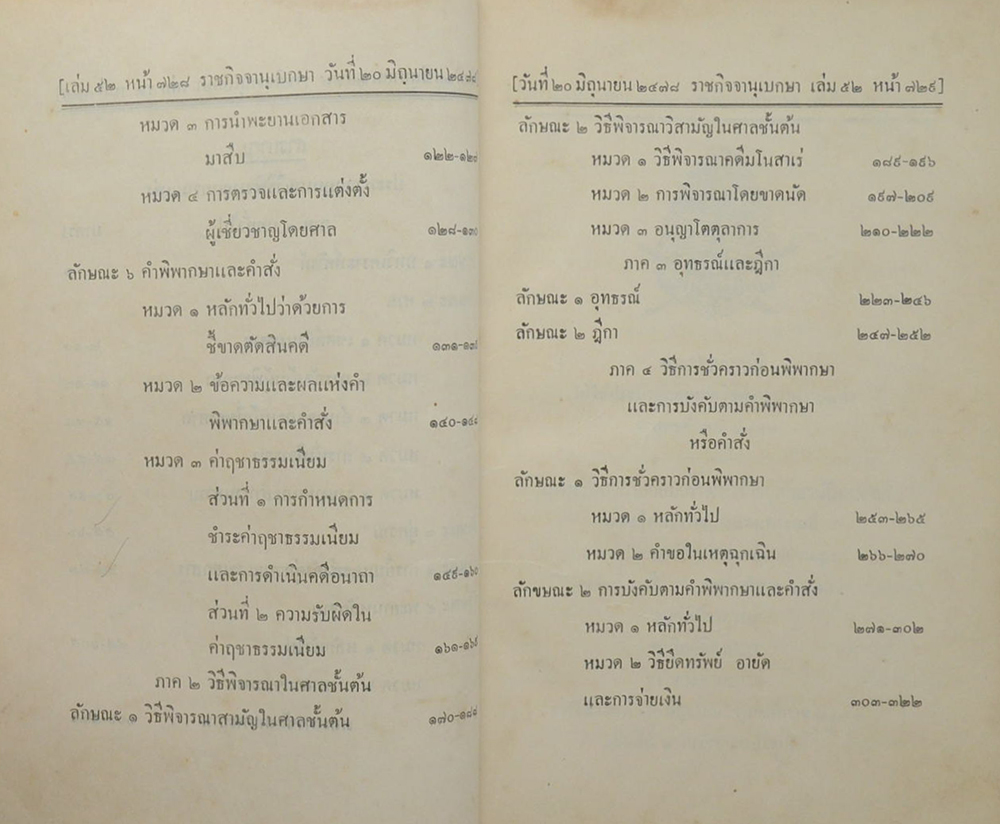 [เล่ม ๕๒ หน้า ๗๒๘ ราชกิจจานุเบกษา วันที่ ๒๐ มิถุนายน ๒๔๗๘
หมวด ๓ การนำพะยานเอกสาร
มาสืบ ๑๒๒-๑๒๗
หมวด ๔ การตรวจและการแต่งตั้ง
ผู้เชี่ยวชาญโดยศาล ๑๒๘-๑๓๐
ลักษณะ ๖ คำพิพากษาและคำสั่ง
หมวด ๑ หลักทั่วไปว่าด้วยการ
ชี้ขาดตัดสินคดี ๑๓๑-๑๓๙
หมวด ๒ ข้อความและผลแห่งคำ
พิพากษาและคำสั่ง ๑๔๐-๑๔๘
หมวด ๓ ค่าฤชาธรรมเนียม
ส่วนที่ ๑ การกำหนดการ
ชำระค่าฤชาธรรมเนียม
และการดำเนินคดีอนาถา ๑๔๙-๑๖๐
ส่วนที่ ๒ ความรับผิดใน
ค่าฤชาธรรมเนียม ๑๖๑-๑๖๙
ภาค ๒ วิธีพิจารณาในศาลชั้นต้น
ลักษณะ ๑ วิธีพิจารณาสามัญในศาลชั้นต้น ๑๗๐-๑๘๘
[วันที่ ๒๐ มิถุนายน ๒๔๗๘ ราชกิจจานุเบกษา เล่ม ๕๒ หน้า ๗๒๙]
ลักษณะ ๒ วิธีพิจารณาวิสามัญในศาลชั้นต้น
หมวด ๑ วิธีพิจารณาคดีมโนสาเร่ ๑๘๙-๑๙๖
หมวด ๒ การพิจารณาโดยขาดนัด ๑๙๗-๒๐๙
หมวด ๓ อนุญาโตตุลาการ ๒๑๐-๒๒๒
ภาค ๓ อุทธรณ์และฎีกา
ลักษณะ ๑ อุทธรณ์ ๒๒๓-๒๔๖
ลักษณะ ๒ ฎีกา ๒๔๗-๒๕๒
ภาค ๔ วิธีการชั่วคราวก่อนพิพากษา
และการบังคับตามคำพิพากษา
หรือคำสั่ง
ลักษณะ ๑ วิธีการชั่วคราวก่อนพิพากษา
หมวด ๑ หลักทั่วไป ๒๕๓-๒๖๕
หมวด ๒ คำขอในเหตุฉุกเฉิน ๒๖๖-๒๗๐
ลักขษณะ ๒ การบังคับตามคำพิพากษาและคำสั่ง
หมวด ๑ หลักทั่วไป ๒๗๑-๓๐๒
หมวด ๒ วิธียึดทรัพย์ อายัด
และการจ่ายเงิน ๓๐๓-๓๒๒